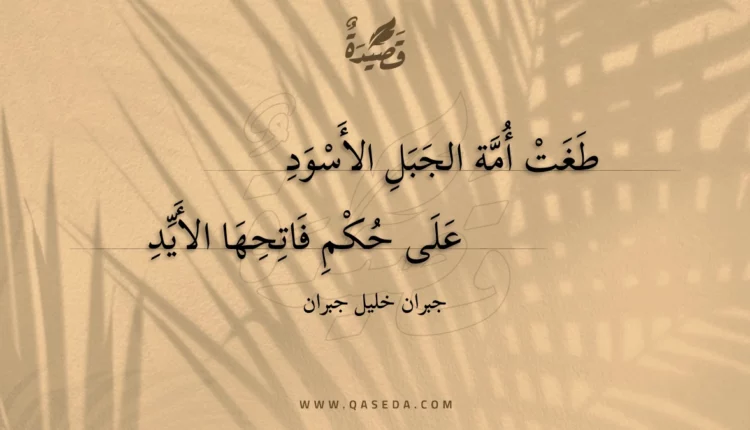 قَصِيْدَةٌ
طَغَتْ أُمَّة الجَبَلِ الأَسْوَدِ
عَلَى حُكْمِ فَاتِحِهَا الأَيِّدِ
جبران خليل جبران
WWW.QASEDA.COM